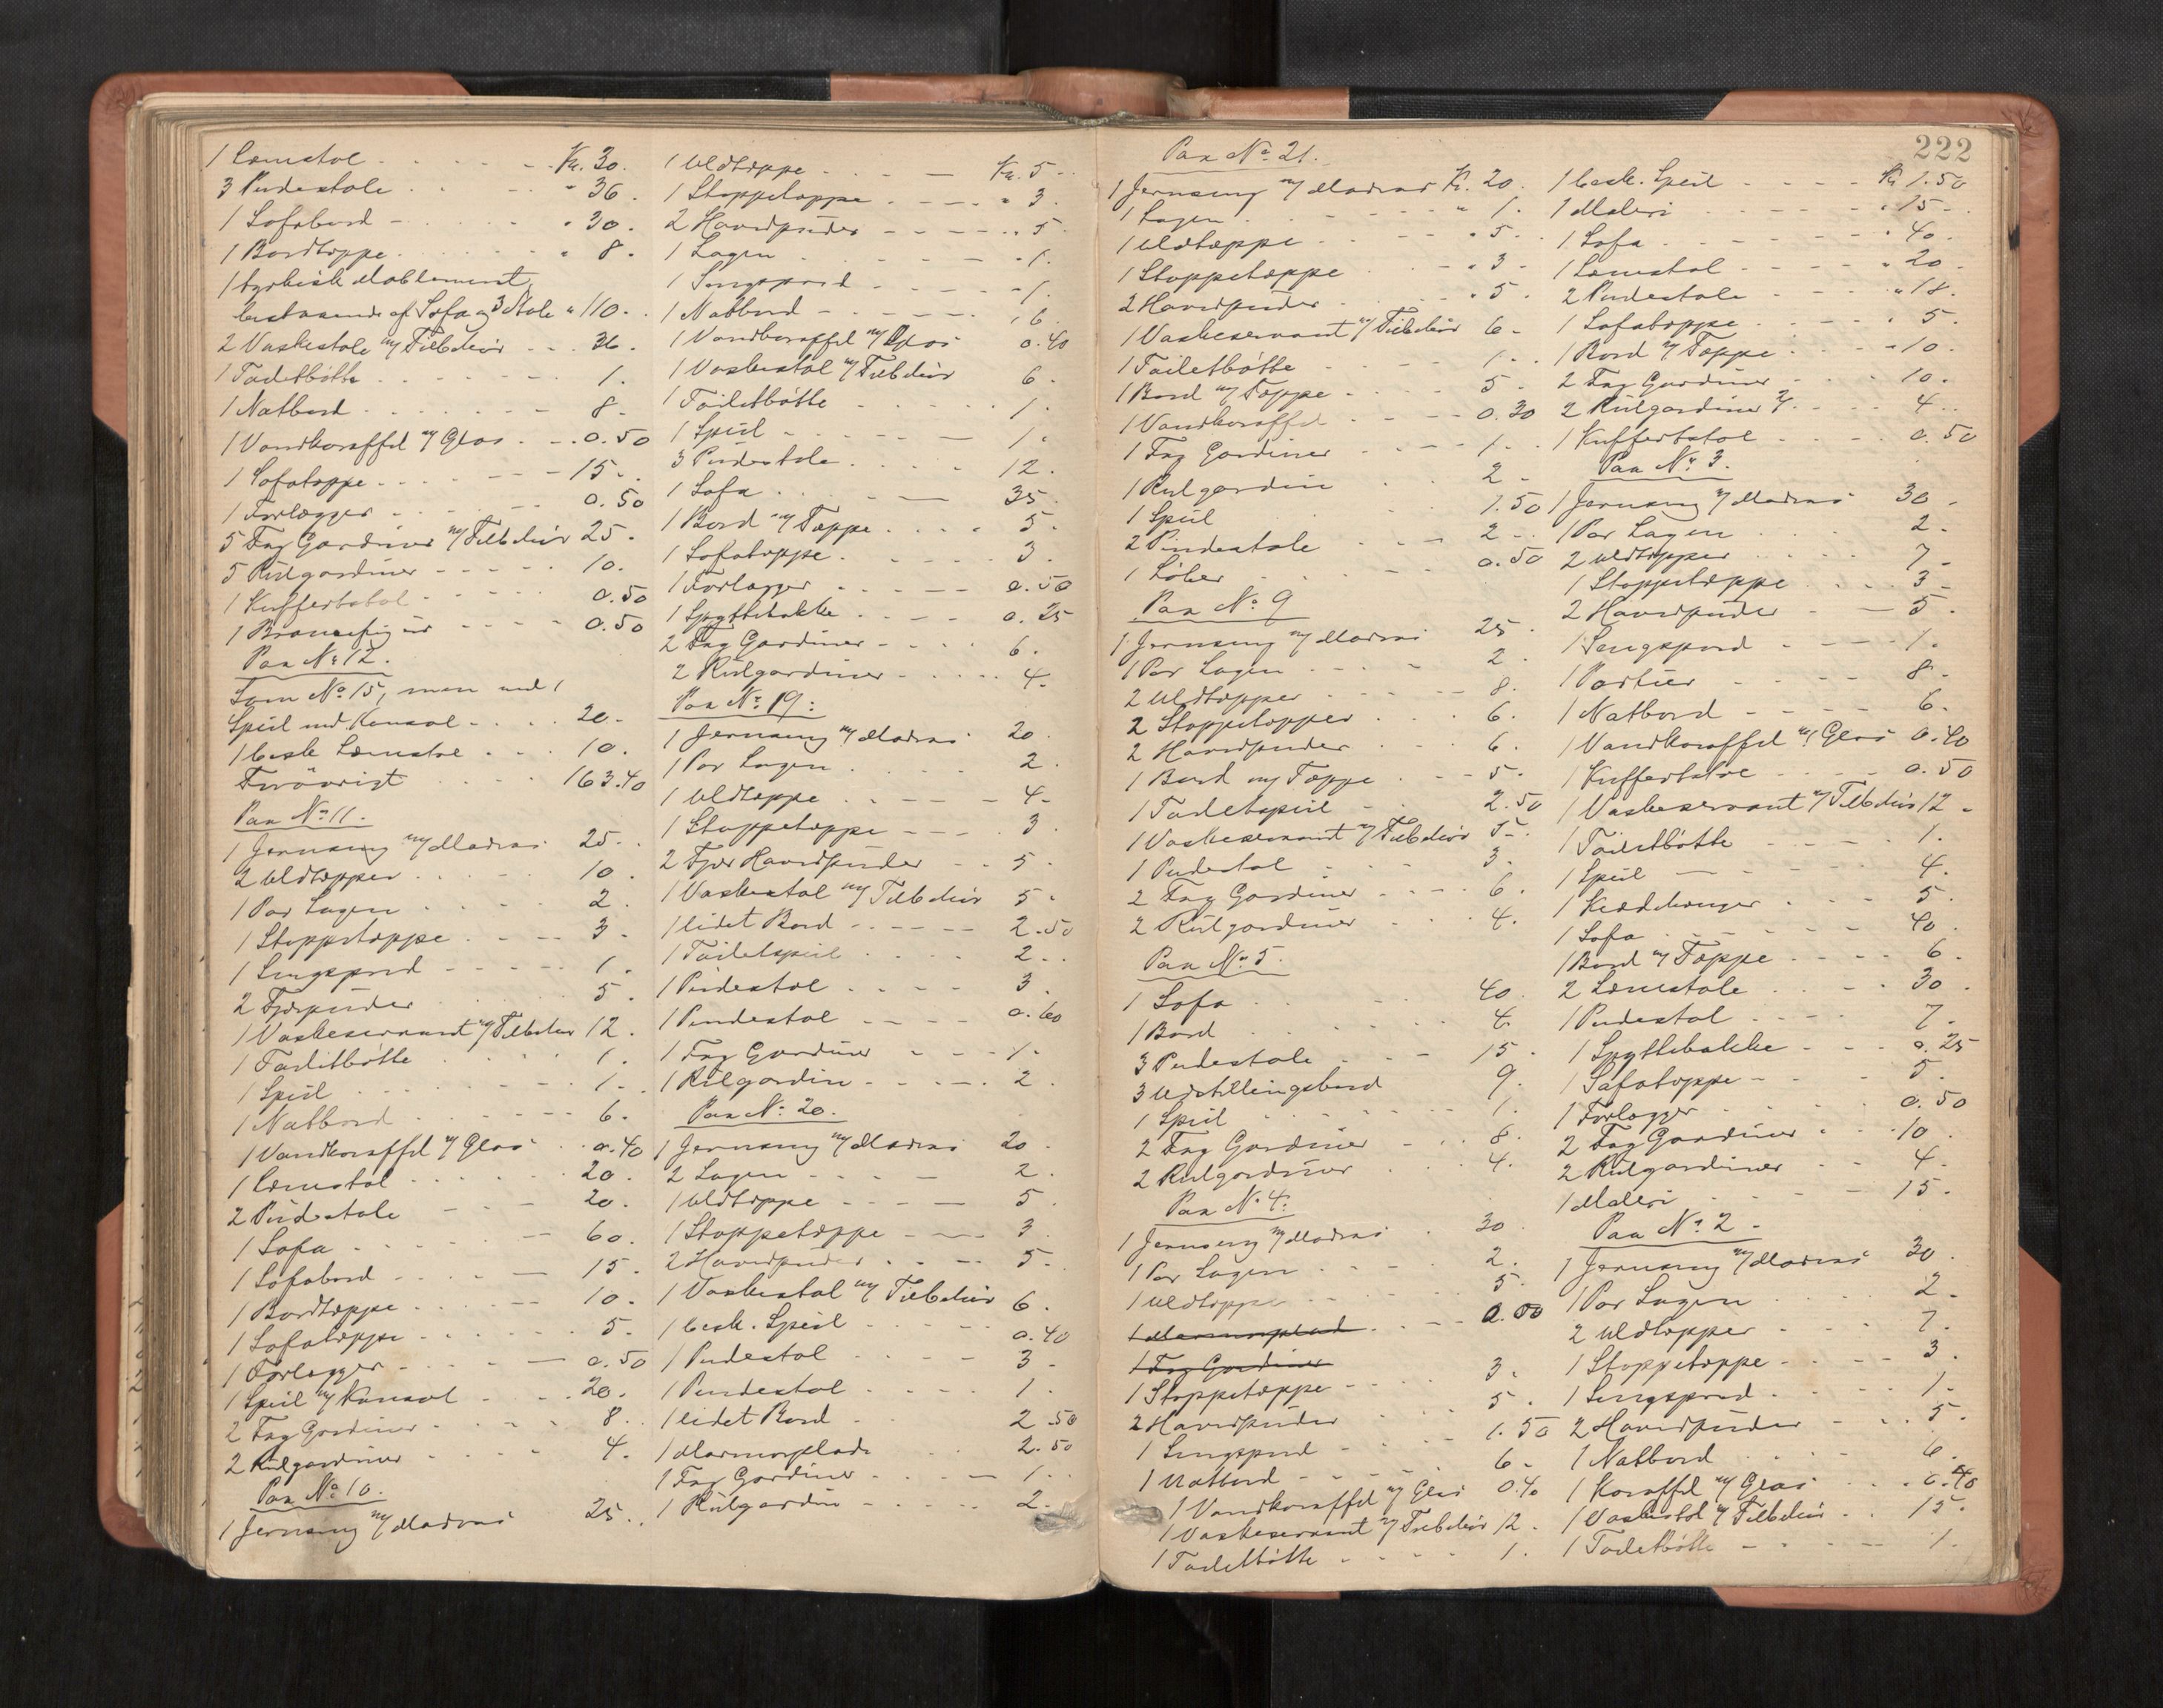 1 Lænestol . . . . . Kr. 30.
3 Pindestole . . . " 36.
1 Sofabord - . . . " 30.
1 Bordtæppe . . . . " 8.
1 tyrkisk Møblement,
bestaaende af Sofa og 3 Stole " 110.
2 Vaskestole m/ Tilbehör . . 36.
1 Toiletbötte . . . . 1.
1 Natbord . . . . 8.
1 Vandkaraffel m/ Glas . . 0.50
1 Sofatæppe . . . . 15.
1 Forlægger . . . . 0.50
5 Fag Gardiner m/ Tilbehör 25.
5 Rulgardiner . . . . 10.
1 Kuffertstol . . . . 0.50
1 Broncefigur . . . . 0.50
Paa No 12.
Som No 15, men med 1
Speil med Konsol . . . . 20.
1 besk. Lænestol . . . 10.
Forövrigt . . . . 163.40
Paa No 11.
1 Jernseng m/ Madras . 25.
2 Uldtæpper . . . . 10.
1 Par Lagen . . . . 2.
1 Stoppetæppe . . . . 3.
1 Sengspred . . . . 1.
2 Fjerpuder . . . . 5.
1 Vaskeservant m/ Tilbehör 12.
1 Toiletbötte . . . . 1.
1 Speil . . . . 1.
1 Natbord . . . . 6.
1 Vandkaraffel m/ Glas . . 0.40
1 Lænestol . . . . 20.
2 Pindestole . . . 20.
1 Sofa . . . . 60.
1 Sofabord . . . . 15.
1 Bordtæppe . . . . 10.
1 Sofatæppe . . . . 5.
1 Forlægger . . . . 0.50
1 Speil m/ Konsol . . . 20.
2 Fag Gardiner . . . . 8.
2 Rulgardiner . . . . 4.
Paa No 10.
1 Jernseng m/ Madras 25.
1 Uldtæppe . . . . Kr. 5.
1 Stoppetæppe . . . . " 3.
2 Hovedpuder . . . . " 5.
1 Lagen . . . . " 1.
1 Sengspred . . . . 1.
1 Natbord . . . . " 6.
1 Vandkaraffel m/ Glas 0.40
1 Vaskestol m/ Tilbehör 6.
1 Toiletbötte . . . . 1.
1 Speil . . . . 1.
3 Pindestole . . . . 12.
1 Sofa . . . . 35.
1 Bord m/ Tæppe . . . . 5.
1 Sofatæppe . . . . 3.
1 Forlægger . . . . 0.50
1 Spyttebakke . . . . 0.25
2 Fag Gardiner . . . . 6.
2 Rulgardiner . . . . 4.
Paa No 19:
1 Jernseng m/ Madras 20.
1 Par Lagen . . . . 2.
1 Uldtæppe . . . . 4.
1 Stoppetæppe . . . . 3.
2 Fjer Hovedpuder . . 5.
1 Vaskestol m/ Tilbehör 5.
1 lidet Bord . . . . 2.50
1 Toiletspeil . . . . 2.
1 Pindestol . . . . 3.
1 Pindestol . . . . 0.60
1 Fag Gardiner . . . . 1.
1 Rulgardin . . . . 2.
Paa No 20.
1 Jernseng m/ Madras 20.
2 Lagen . . . . 2.
1 Uldtæppe . . . . 5.
1 Stoppetæppe . . . . 3
2 Hovedpuder . . . . 5.
1 Vaskestol m/ Tilbehör 6.
1 besk. Speil . . . . 0.40
1 Pindestol . . . . 3.
1 Pindestol . . . . 1.
1 lidet Bord . . 2.50
1 Marmorplade . . 2.50
1 Fag Gardiner . . . . 1.
1 Rulgardin . . . . 2.
222
Paa No 21.
1 Jernseng m/ Madras Kr. 20.
1 Lagen . . . . " 1.
1 Uldtæppe . . . . " 5.
1 Stoppetæppe . . . " 3.
2 Hovedpuder . . . . " 5.
1 Vaskeservant m/ Tilbehör 6.
1 Toiletbötte . . . . 1.
1 Bord m/ Tæppe . . . . 5.
1 Vandkaraffel . . . . 0.30
1 Fag Gardiner . . . . 1.
1 Rulgardin . . 2.
1 Speil 1.50
2 Pindestole . . . . 2.
1 Löber . . . . 0.50
Paa No 9
1 Jernseng m/ Madras 25.
1 Par Lagen . . . . 2.
2 Uldtæpper . . . . 8.
2 Stoppetæpper . . . . 6.
2 Hovedpuder . . . . 6.
1 Bord m/ Tæppe . . . . 5.
1 Toiletspeil . . . 2.50
1 Vaskeservant m/ Tilbehör 5.
1 Pindestol . . . . 3.
2 Fag Gardiner . . . . 6.
2 Rulgardiner . . . . 4.
Paa No 5.
1 Sofa . . . . 40.
1 Bord . . . . 4.
3 Pindestole . . . . 15.
3 Udstillingsbord 9.
1 Speil . . . . 1.
2 Fag Gardiner . . . . 8.
2 Rulgardiner . . . . 4.
Paa No 4:
1 Jernseng m/ Madras . 30.
1 Par Lagen . . . . 2.
1 Uldtæppe . . . . 5.
1 Marmorplad . . . .
1 Fag Gardiner
1 Stoppetæppe . . . . 3.
2 Hovedpuder . . . . 5.
1 Sengspred . . . . 1.50
1 Natbord . . . . 6.
1 Vandkaraffel m/ Glas 0.40
1 Vaskeservant m/ Tilbehör 12.
1 Toiletbötte . . . . 1.
1 besk. Speil . . . . Kr. 1.50
1 Maleri . . . . " 15.
1 Sofa . . . . " 40.
1 Lænestol . . . . " 20.
2 Pindestole . . . . " 18.
1 Sofatæppe . . . . " 5.
1 Bord m/ Tæppe . . . . " 10.
2 Fag Gardiner . . . . 10.
2 Rulgardiner . . . . 4.
1 Kuffertstol . . . . 0.50
Paa No 3.
1 Jernseng m/ Madras 30.
1 Par Lagen . . . . 2.
2 Uldtæpper . . . . 7.
1 Stoppetæppe . . . . 3.
2 Hovedpuder . . . . 5.
1 Sengspred . . . . 1.
1 Portier . . . . 8.
1 Natbord . . . . 6.
1 Vandkaraffel m/ Glas 0.40
1 Kuffertstol . . . . 0.50
1 Vaskeservant m/ Tilbehör 12.
1 Toiletbötte . . . . 1.
1 Speil . . . . 4.
1 Klædehenger . . . . 5.
1 Sofa . . . . 40.
1 Bord m/ Tæppe . . . . 6.
2 Lænestole . . . . 30.
1 Pindestol . . . . 7.
1 Spyttebakke . . . . 0.25
1 Sofatæppe . . . . 5.
1 Forlægger . . . . 0.50
2 Fag Gardiner . . . . 10.
2 Rulgardiner . . . . 4.
1 Maleri . . . . 15.
Paa No 2.
1 Jernseng m/ Madras 30.
1 Par Lagen . . . . 2.
2 Uldtæpper . . . . 7.
1 Stoppetæppe . . . . 3.
1 Sengspred . . . . 1.
2 Hovedpuder . . . . 5.
1 Natbord . . . . 6.
1 Karaffel m/ Glas . . 0.40
1 Vaskestol m/ Tilbehör . . 15.
1 Toiletbötte . . . . 1.